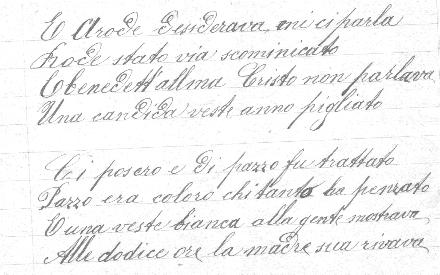 E Arode desiderava, mi ci parla
Erode stato via scominicato
O benedett'allma Cristo non parlava
Una candida veste anno pigliato
Ci posero e di pazzo fu trattato
Pazzo era coloro chi tanto ha penzato
E una veste bianca alla gente mostrava
Alle dodice ore la madre sua rivava